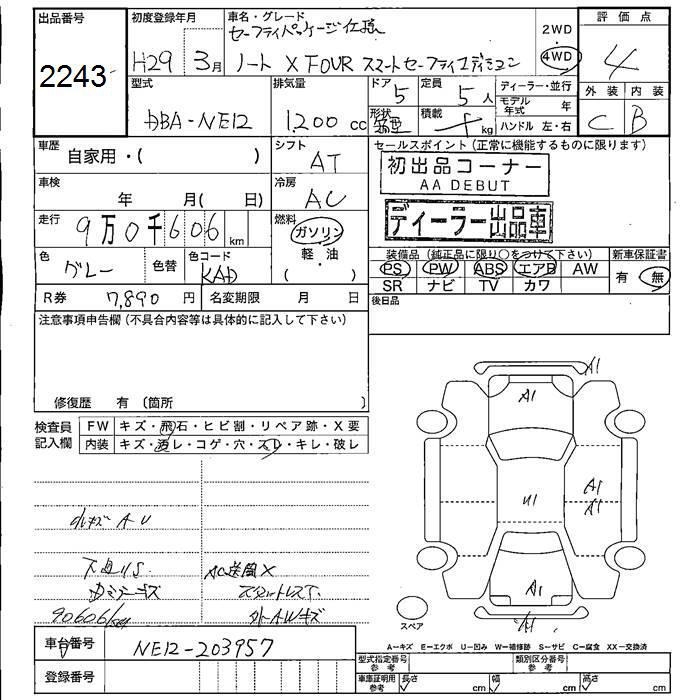 出品番号 2243
初度登録年月 H29 3月
車名・グレード セーフティパッケージ仕様
ノート X FOUR スマートセーフティエディション
2WD
4WD
評価点 4
外装 内装
C B
型式 DBA-NE12
排気量 1,200 cc
ドア 5
定員 5人
形状
積載 kg
ディーラー・並行
モデル年式 年
ハンドル 左・右
車歴 自家用・( )
シフト AT
車検 年 月( 日)
冷房 AC
走行 9万0千606 km
燃料 ガソリン
軽・油
( )
色 グレー
色替
色コード KAD
R券 7,890 円
名変期限 月 日
セールスポイント(正常に機能するものに限ります)
初出品コーナー
AA DEBUT
ディーラー出品車
装備品(純正品に限り○をつけて下さい)
PS PW ABS エアB AW
SR ナビ TV カワ
新車保証書
有 無
後日品
注意事項申告欄(不具合内容等は具体的に記入して下さい)
修復歴 有 (箇所 )
検査員記入欄
FW キズ・飛石・ヒビ割・リペア跡・X要
内装 キズ・汚レ・コゲ・穴・スレ・キレ・破レ
小キズ A U
下廻りS AC送風X
90606km 外-AWキズ
A1
A1
U1
A1
A1
A1
A1
スペア
A-キズ E-エクボ U-凹み W-補修跡 S-サビ C-腐食 XX-交換済
車台番号 NE12-203957
登録番号
型式指定番号参考
類別区分番号参考
車庫証明用参考 長さ cm 幅 cm 高さ cm